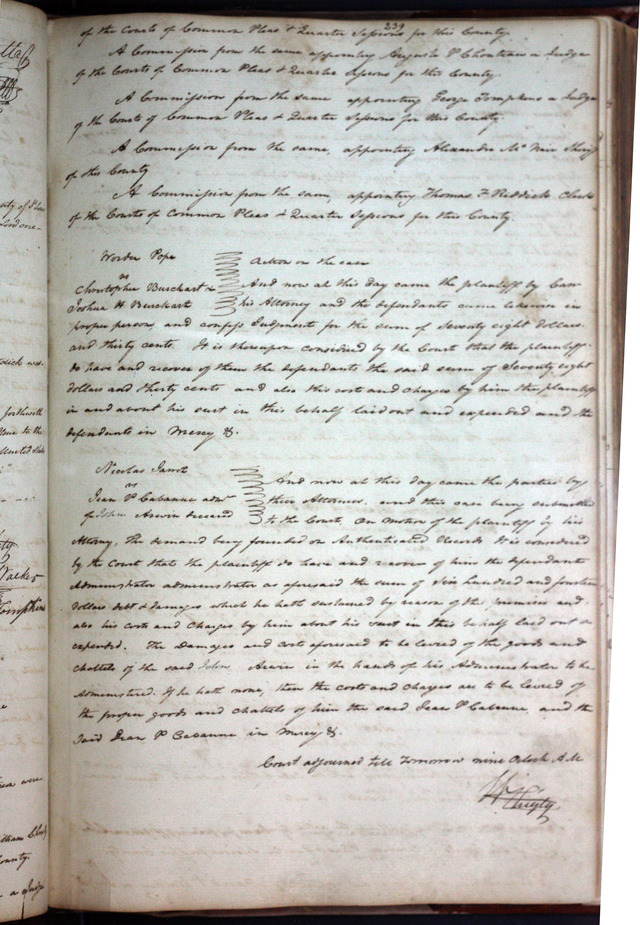 239
of the Courts of Common Pleas & Quarter Sessions for this County.
A Commission from the same appointing Auguste P Chouteau a Judge
of the Courts of Common Pleas & Quarter Sessions for this County.
A Commission from the same appointing George Tompkins a Judge
of the Courts of Common Pleas & Quarter Sessions for this County.
A Commission from the same, appointing Alexander Mc Nair Sheriff
of this County
A Commission from the same, appointing Thomas F Riddick Clerk
of the Courts of Common Pleas & Quarter Sessions for this County.
Worden Pope
Action on the case
vs
Christopher Burckart &
And now at this day came the plaintiff by
Joshua H Burckart
his Attorney and the defendants came likewise in
proper person, and confess Judgment for the sum of Seventy eight dollars
and thirty cents. It is thereupon considered by the Court that the plaintiff
do have and recover of them the defendants the said sum of Seventy eight
dollars and thirty cents and also this costs and charges by him the plaintiff
in and about his suit in this behalf laid out and expended and the
defendants in Mercy &.
Nicolas Jarrot
And now at this day came the parties by
vs
Jean P Cabanne admr
their Attornies. and this case being submitted
of John deceased
to the Court, On Motion of the plaintiff by his
Attorny, The demand being founded on Authenticated Records It is considered
by the Court that the plaintiff do have and recover of him the defendant
Administrator administrator as aforesaid the sum of hundred and fourteen
dollars debt & damages which he hath sustained by reason of the premises and
also his costs and charges by him about his suit in this behalf laid out &
expended. The damages and costs aforesaid to be levied of the goods and
chattels of the said John in the hands of his Administrator to be
administered. If he hath none, then the costs and charges are to be levied of
the proper goods and chattels of him the said Jean P Cabanne, and the
said Jean P Cabanne in Mercy &.
Court adjourned till Tomorrow nine Oclock A.M
Christy